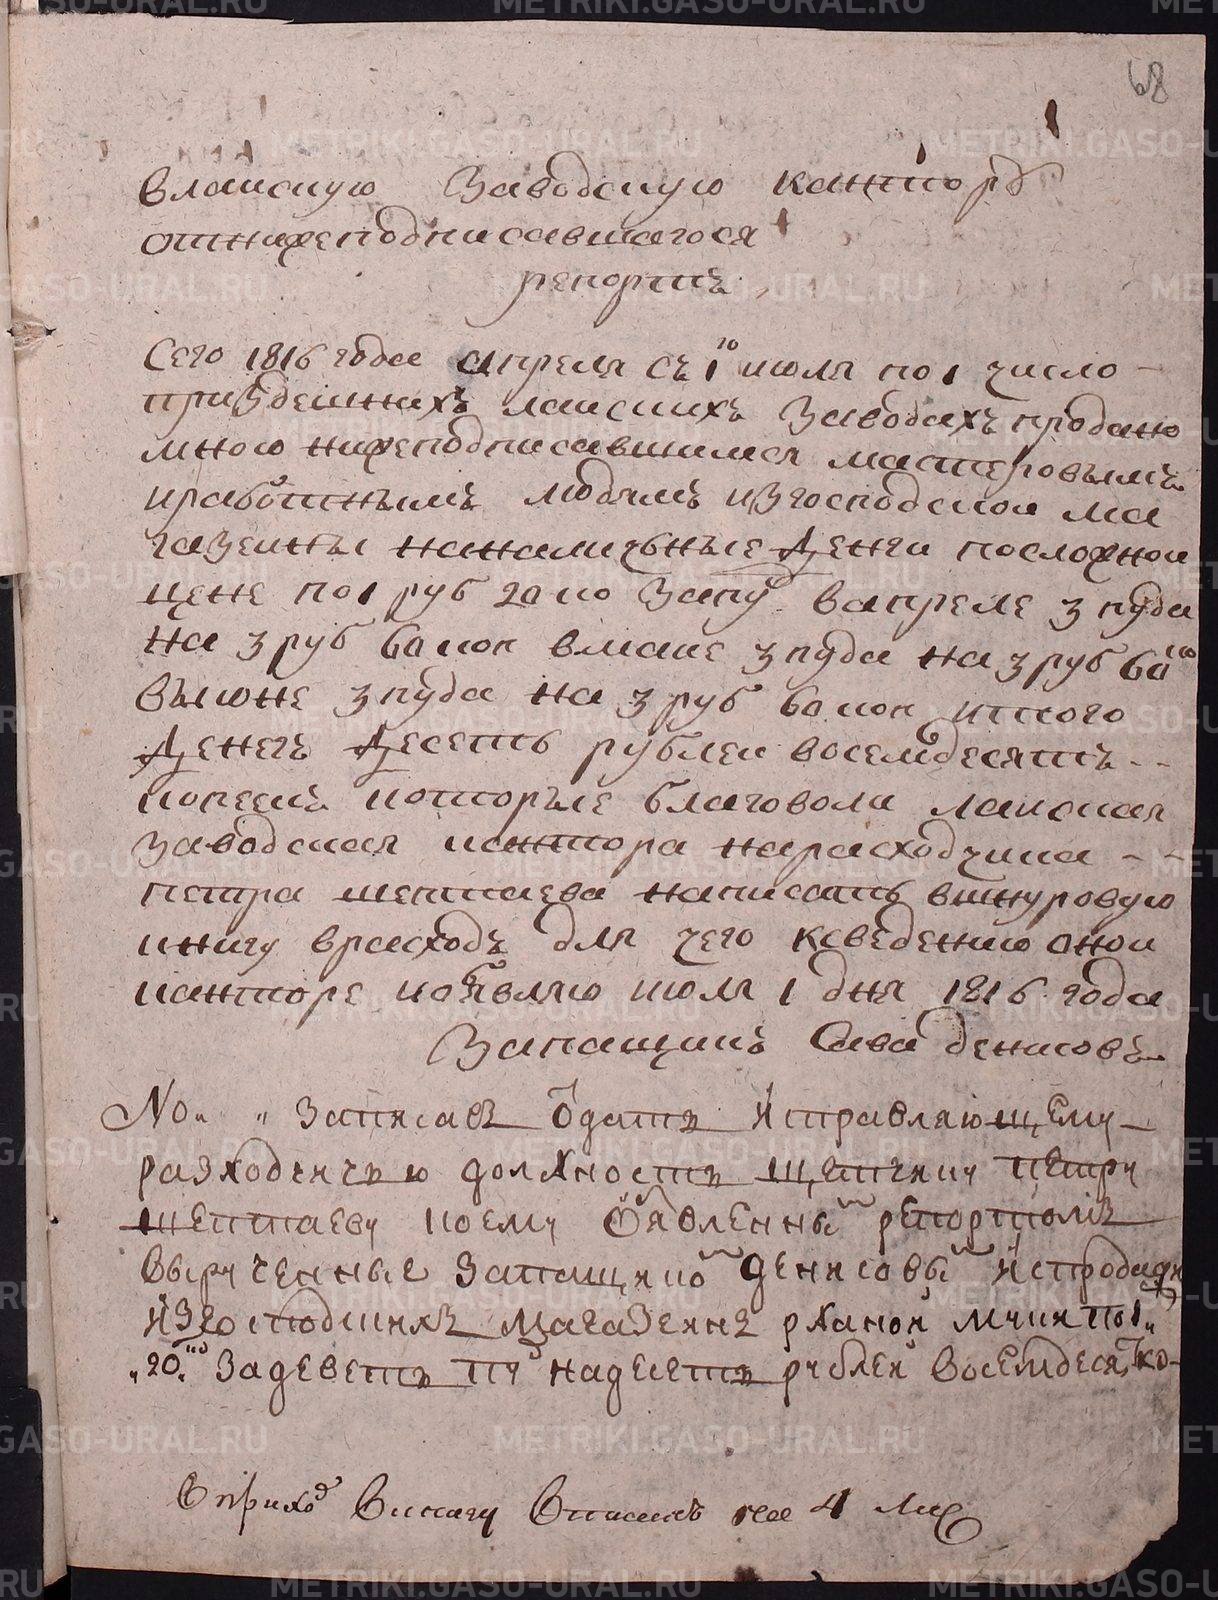 68
влайскую Заводскую кантору
отнижеподписавшагося
репортъ
Сего 1816 года апреля съ 1го июля по 1 число
приздешнихъ лайскихъ Заводахъ продано
мною нижеподписавшимся мастеровымъ
иработнымъ людямъ изгосподской ма
газеины наналичные денги посложной
цене по 1 руб 20 ко Запуд вапреле 3 пуда
на 3 руб 60 коп вмаие 3 пуда на 3 руб 60 ко
выюне 3 пуда на 3 руб 60 коп итого
денегъ десеть рублей восемдесятъ
копеекъ которые благоволи лайская
Заводская кантора нарасходчика
петра шептаева написать вшнуровую
книгу врасходъ для чего ксведению оной
канторе иобявляю июля 1 дня 1816 года
Запащикъ Сава денисовъ
No „ „ Записавъ Отдать исправляющему
разходничью должность щетчику петру
шептаеву поему обявленный репортомъ
вырученные запащиком денисовым испродажи
изгосподскихъ магазеинъ ржаной муки по 1„
„20 ко задеветь пуд надесеть рублей восемдесят ко
Вприход Вкнигу Вписанъ на 4 лис
METRIKI.GASO-URAL.RU